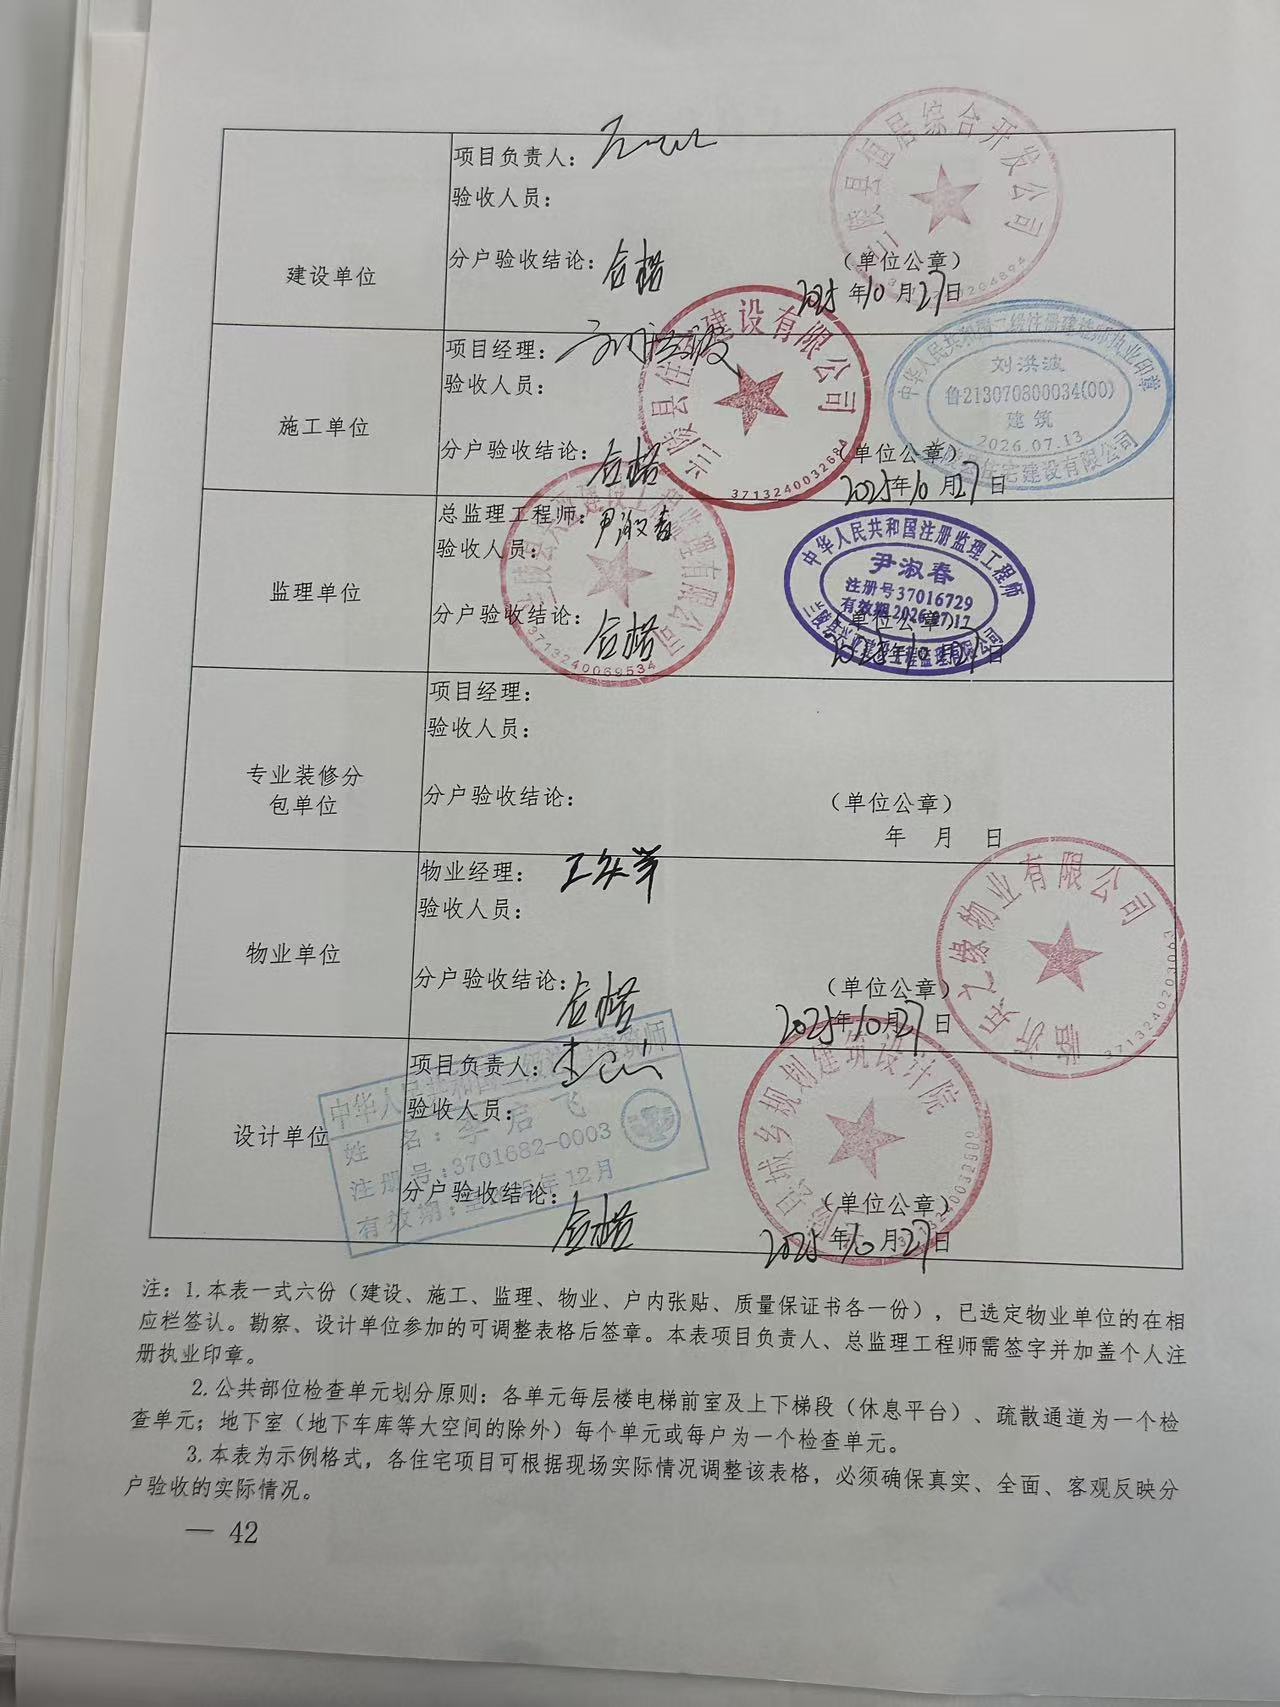 建设单位
项目负责人：
验收人员：
分户验收结论：合格
（单位公章）
2025年10月27日
县恒居综合开发公司
施工单位
项目经理：刘洪波
验收人员：
分户验收结论：合格
（单位公章）
2025年10月27日
建设有限公司
中华人民共和国二级注册建造师执业印章
刘洪波
鲁213070800034(00)
建筑
2026.07.13
住宅建设有限公司
监理单位
总监理工程师：尹淑春
验收人员：
分户验收结论：合格
（单位公章）
工程监理有限公司
3713240069534
中华人民共和国注册监理工程师
尹淑春
注册号37016729
有效期2026.07.17
专业装修分
包单位
项目经理：
验收人员：
分户验收结论：
（单位公章）
年 月 日
物业单位
物业经理：
验收人员：
分户验收结论：合格
（单位公章）
2025年10月27日
临沂知之缘物业有限公司
3713240203063
设计单位
项目负责人：
验收人员：
分户验收结论：合格
（单位公章）
2025年10月27日
城乡规划建筑设计院
姓 名：李启飞
注册号：3701682-0003
注：1.本表一式六份（建设、施工、监理、物业、户内张贴、质量保证书各一份），已选定物业单位的在相
应栏签认。勘察、设计单位参加的可调整表格后签章。本表项目负责人、总监理工程师需签字并加盖个人注
册执业印章。
2.公共部位检查单元划分原则：各单元每层楼电梯前室及上下梯段（休息平台）、疏散通道为一个检
查单元；地下室（地下车库等大空间的除外）每个单元或每户为一个检查单元。
3.本表为示例格式，各住宅项目可根据现场实际情况调整该表格，必须确保真实、全面、客观反映分
户验收的实际情况。
— 42